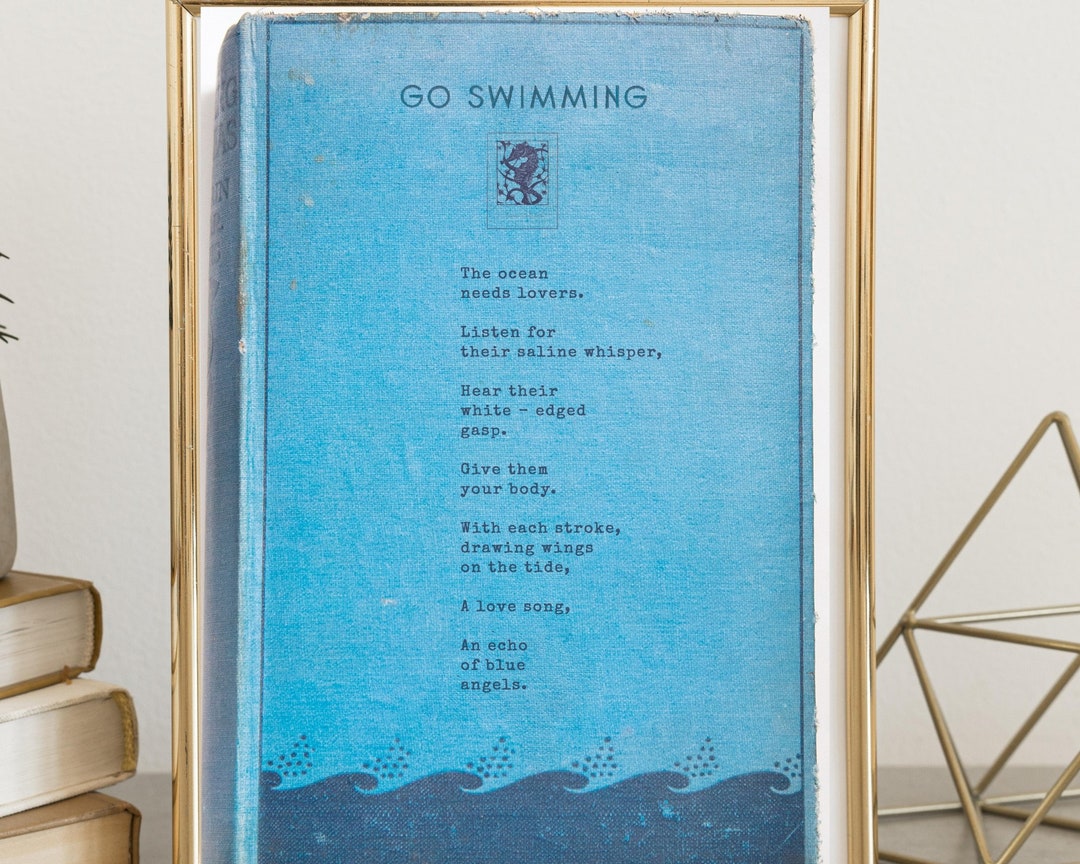 GO SWIMMING
The ocean
needs lovers.
Listen for
their saline whisper,
Hear their
white - edged
gasp.
Give them
your body.
With each stroke,
drawing wings
on the tide,
A love song,
An echo
of blue
angels.